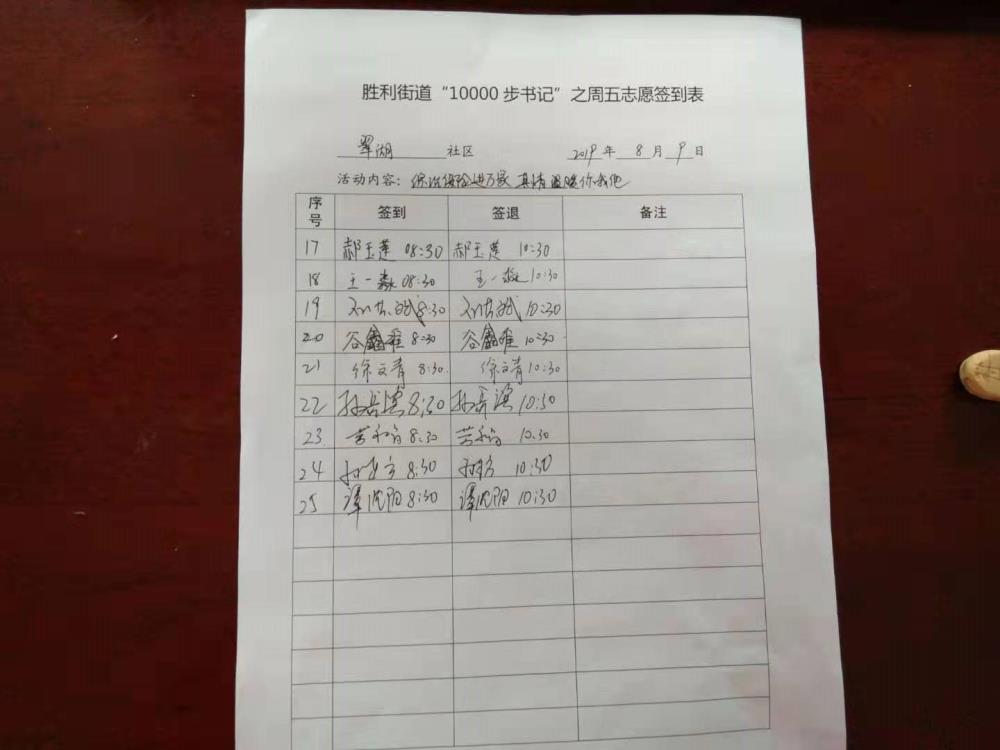 胜利街道“10000步书记”之周五志愿签到表
翠湖 社区 2019 年 8 月 9 日
活动内容: 保险进万家 真情温暖你我他
序号 签到 签退 备注
17 郝玉莲 08:30 郝玉莲 10:30
18 王一淼 08:30 王一淼 10:30
19 8:30 10:30
20 谷鑫雅 8:30 谷鑫雅 10:30
21 徐文青 8:30 徐文青 10:30
22 8:30 10:30
23 8:30 10:30
24 8:30 10:30
25 谭沈阳 8:30 谭沈阳 10:30